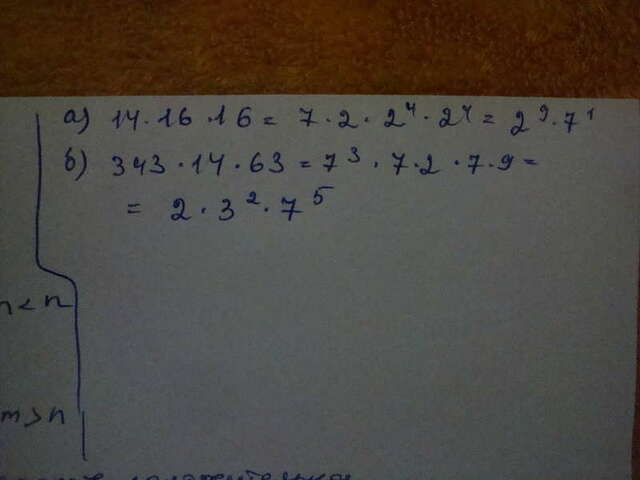 а) 14 · 16 · 16 = 7 · 2 · 2⁴ · 2⁴ = 2⁹ · 7¹
б) 343 · 14 · 63 = 7³ · 7 · 2 · 7 · 9 =
= 2 · 3² · 7⁵
< n
m > n